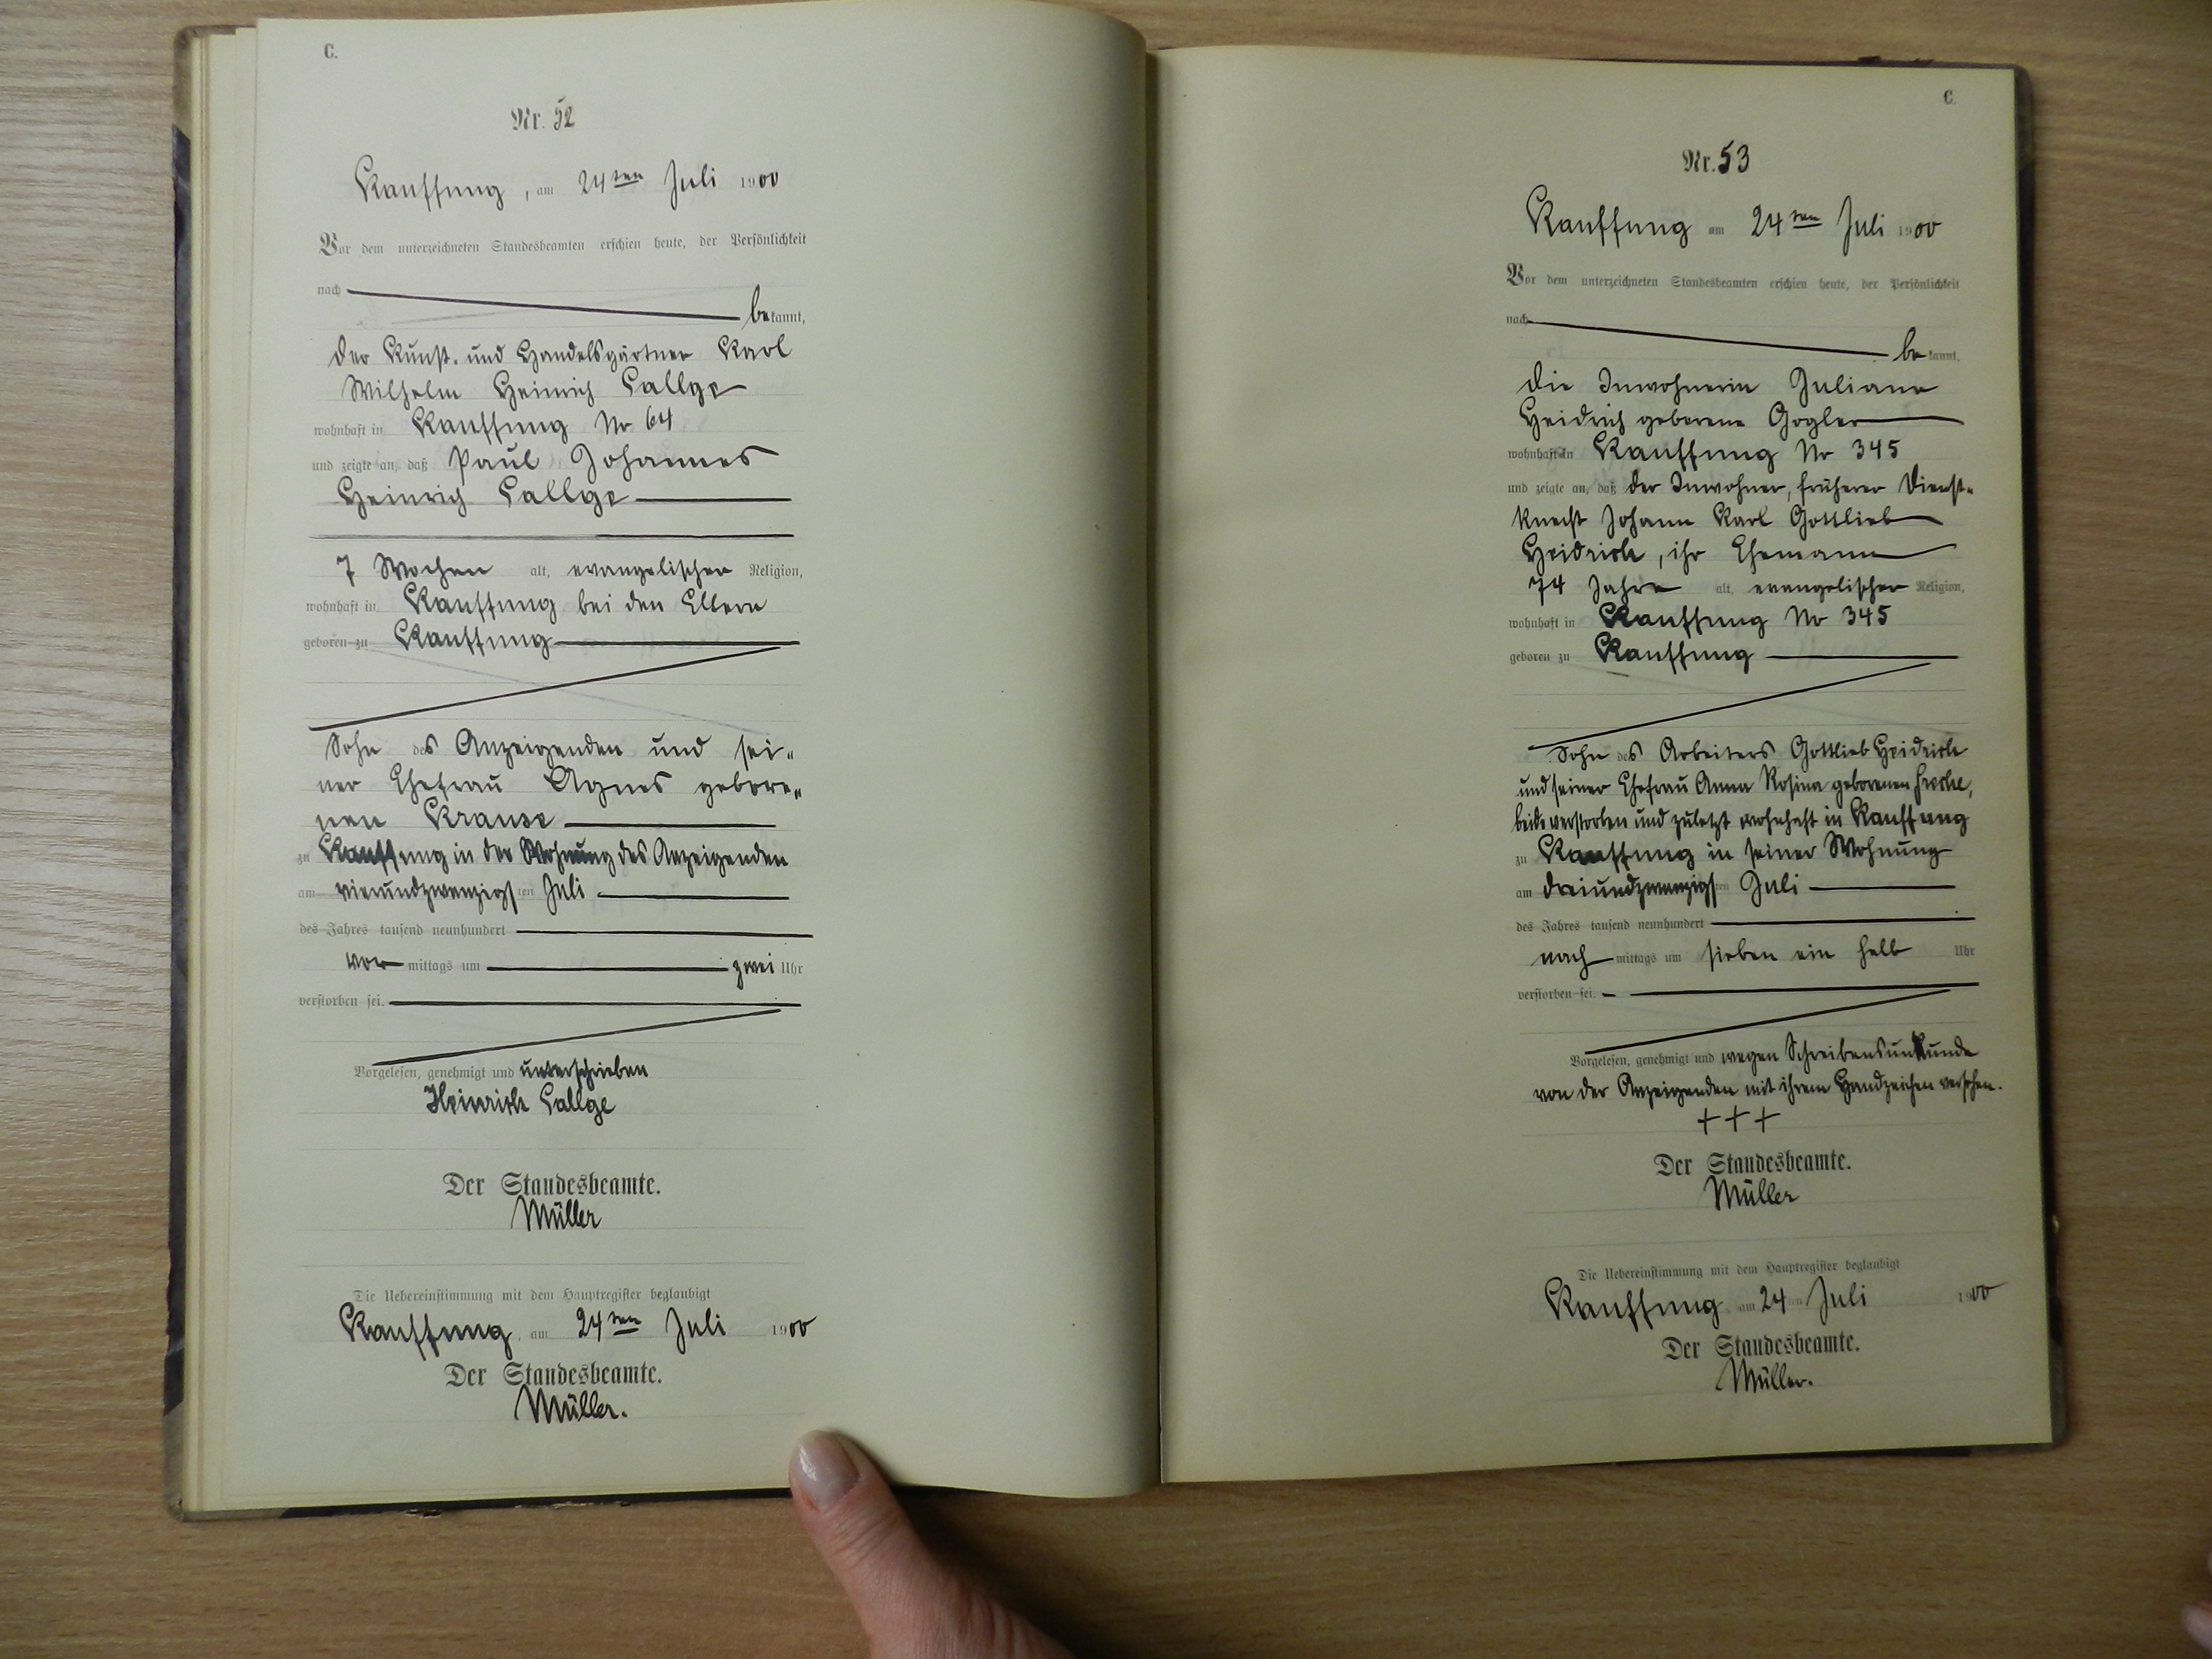 C.
Nr. 52
Kauffung, am 24ten Juli 1900
Vor dem unterzeichneten Standesbeamten erschien heute, der Persönlichkeit
nach
bekannt,
der Kunst- und Handelsgärtner Karl
Wilhelm Heinrich Callge
wohnhaft in Kauffung No 64
und zeigte an, daß Paul Johannes
Heinrich Callge
7 Wochen alt, evangelischer Religion,
wohnhaft in Kauffung bei den Eltern
geboren zu Kauffung
Sohn des Anzeigenden und sei-
ner Ehefrau Agnes gebore-
nen Krause
zu Kauffung in der Wohnung des Anzeigenden
am vierundzwanzigsten Juli
des Jahres tausend neunhundert
vormittags um zwei Uhr
verstorben sei.
Vorgelesen, genehmigt und unterschrieben
Heinrich Callge
Der Standesbeamte.
Müller
Die Uebereinstimmung mit dem Hauptregister beglaubigt
Kauffung, am 24ten Juli 1900
Der Standesbeamte.
Müller.
C.
Nr. 53
Kauffung am 24ten Juli 1900
Vor dem unterzeichneten Standesbeamten erschien heute, der Persönlichkeit
nach
bekannt,
die Inwohnerin Juliane
Heidrich geborene Gogler
wohnhaft in Kauffung No 345
und zeigte an, daß der Inwohner, früherer Dienst-
knecht Johann Karl Gottlieb
Heidrich, ihr Ehemann
74 Jahre alt, evangelischer Religion,
wohnhaft in Kauffung No 345
geboren zu Kauffung
Sohn des Arbeiters Gottlieb Heidrich
und seiner Ehefrau Anna Rosina geborenen
beide verstorben und zuletzt wohnhaft in Kauffung
zu Kauffung in seiner Wohnung
am dreiundzwanzigsten Juli
des Jahres tausend neunhundert
nachmittags um sieben ein halb Uhr
verstorben sei.
Vorgelesen, genehmigt und wegen Schreibensunkunde
von der Anzeigenden mit ihrem Handzeichen versehen.
+++
Der Standesbeamte.
Müller
Die Uebereinstimmung mit dem Hauptregister beglaubigt
Kauffung, am 24ten Juli 1900
Der Standesbeamte.
Müller.